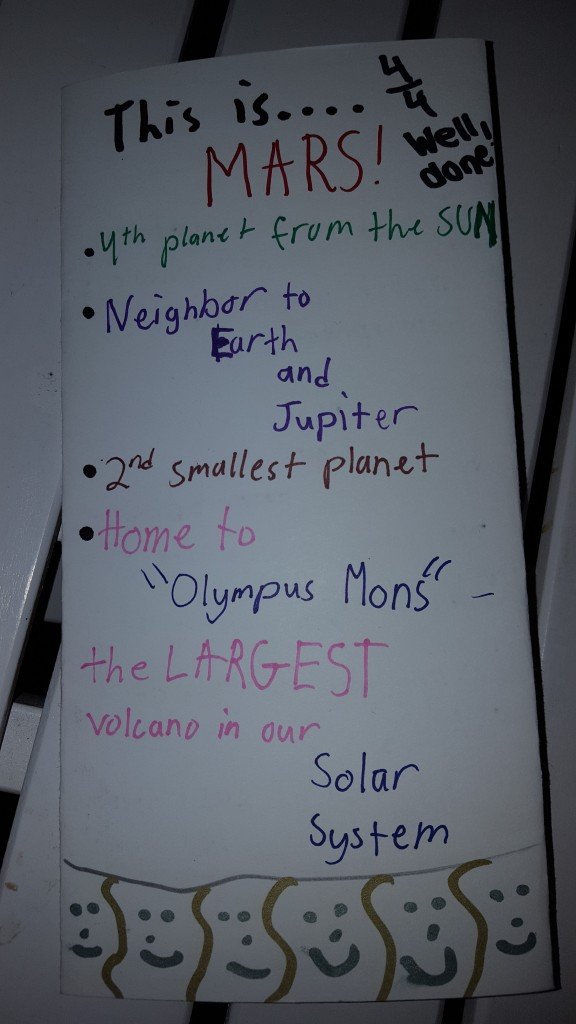 This is....
4/4
Well,
done!
MARS!
• 4th planet from the SUN
• Neighbor to
Earth
and
Jupiter
• 2nd smallest planet
• Home to
"Olympus Mons" –
the LARGEST
volcano in our
Solar
System